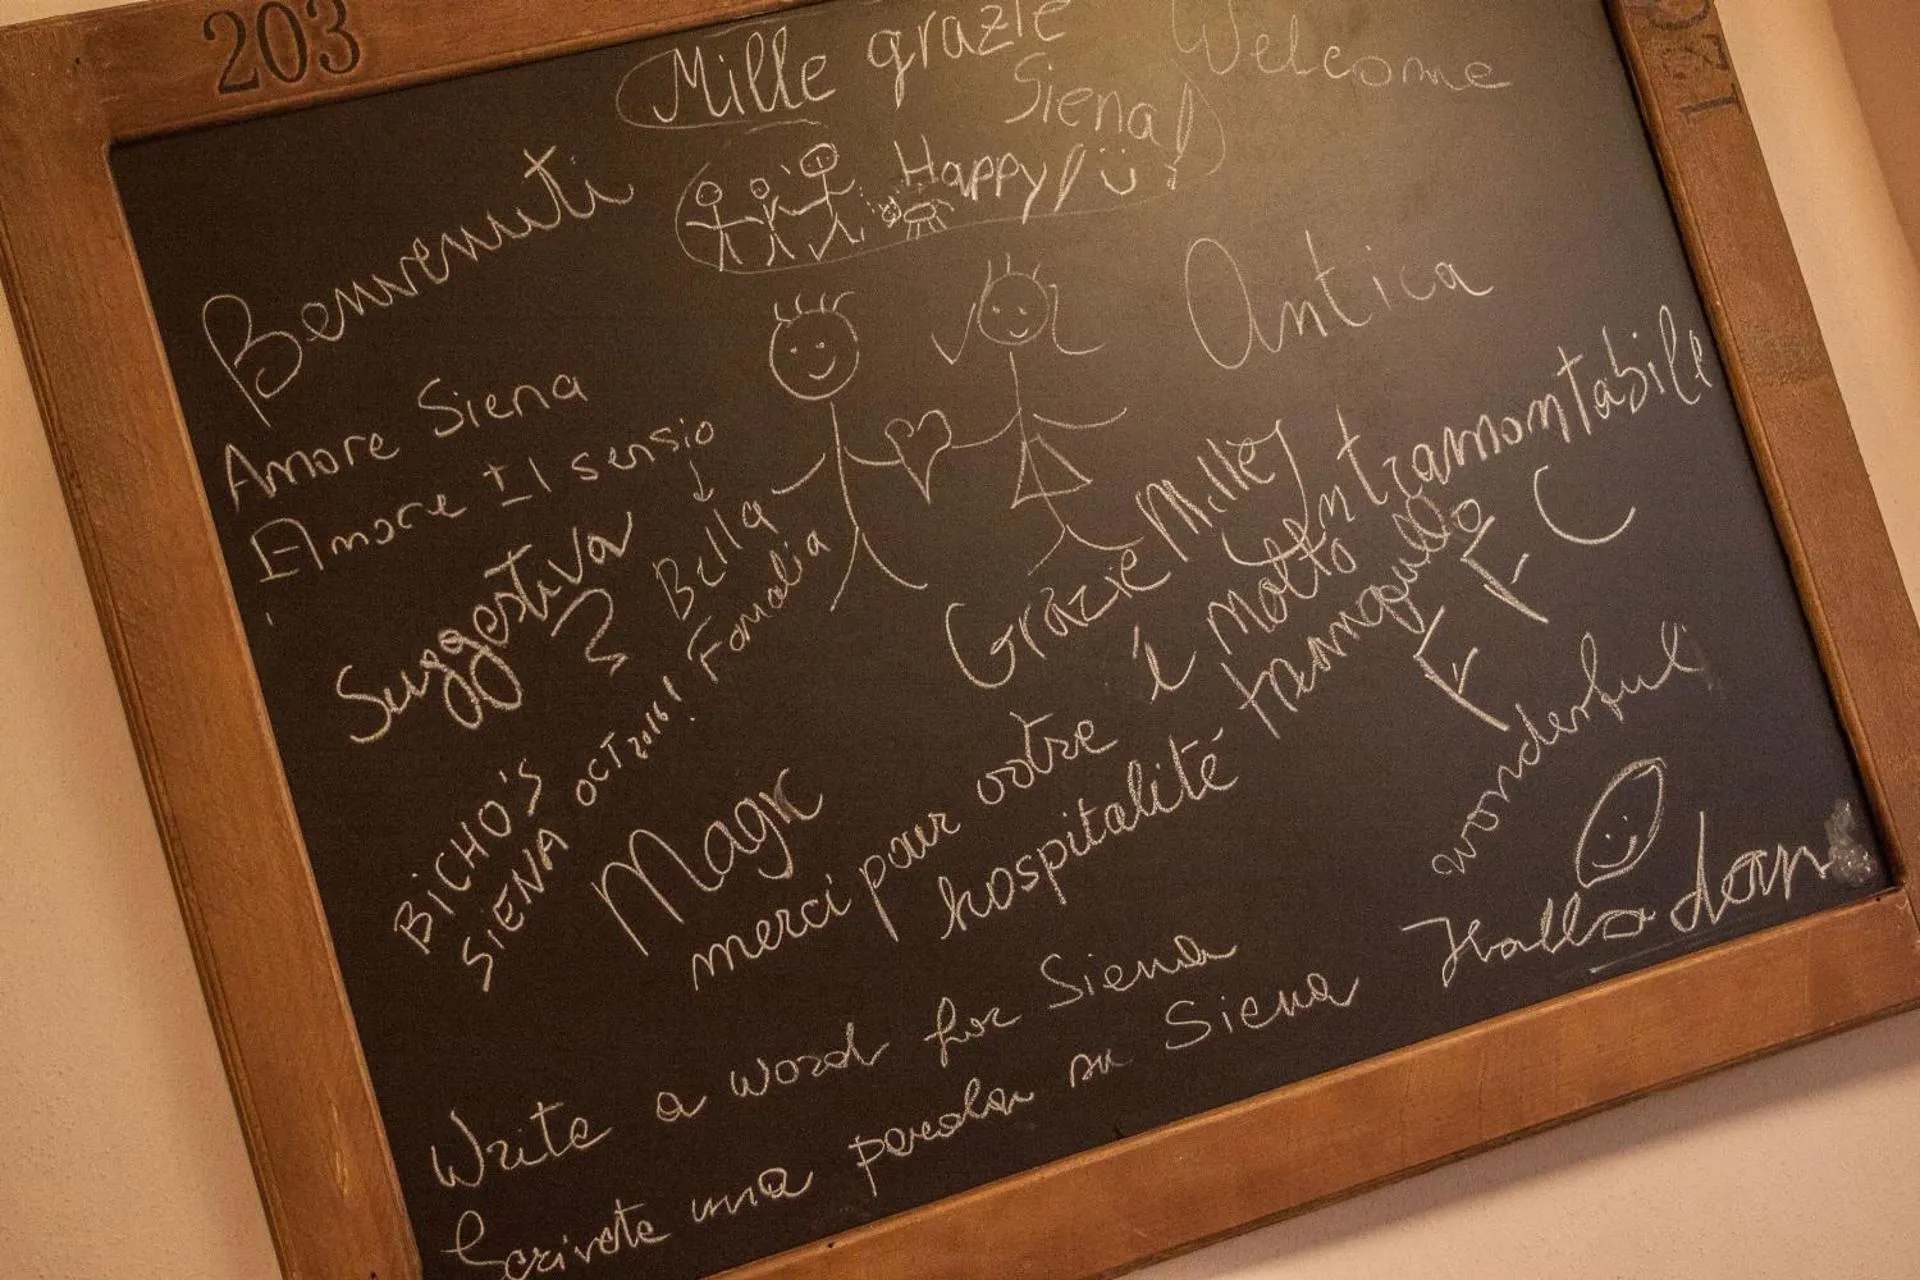 203
120
Mille grazie
Siena!
Welcome
Happy! ü!
Benvenuti
Antica
Amore Siena
Amore Il sensio
Suggestiva
Bella
Grazie Mille
Intramontabile
è molto
tranquillo
BiCHO'S
SIENA OCT 2016!
Magic
merci pour votre
hospitalité
wonderful
Hallo
Write a word for Siena
Scrivete una parola su Siena